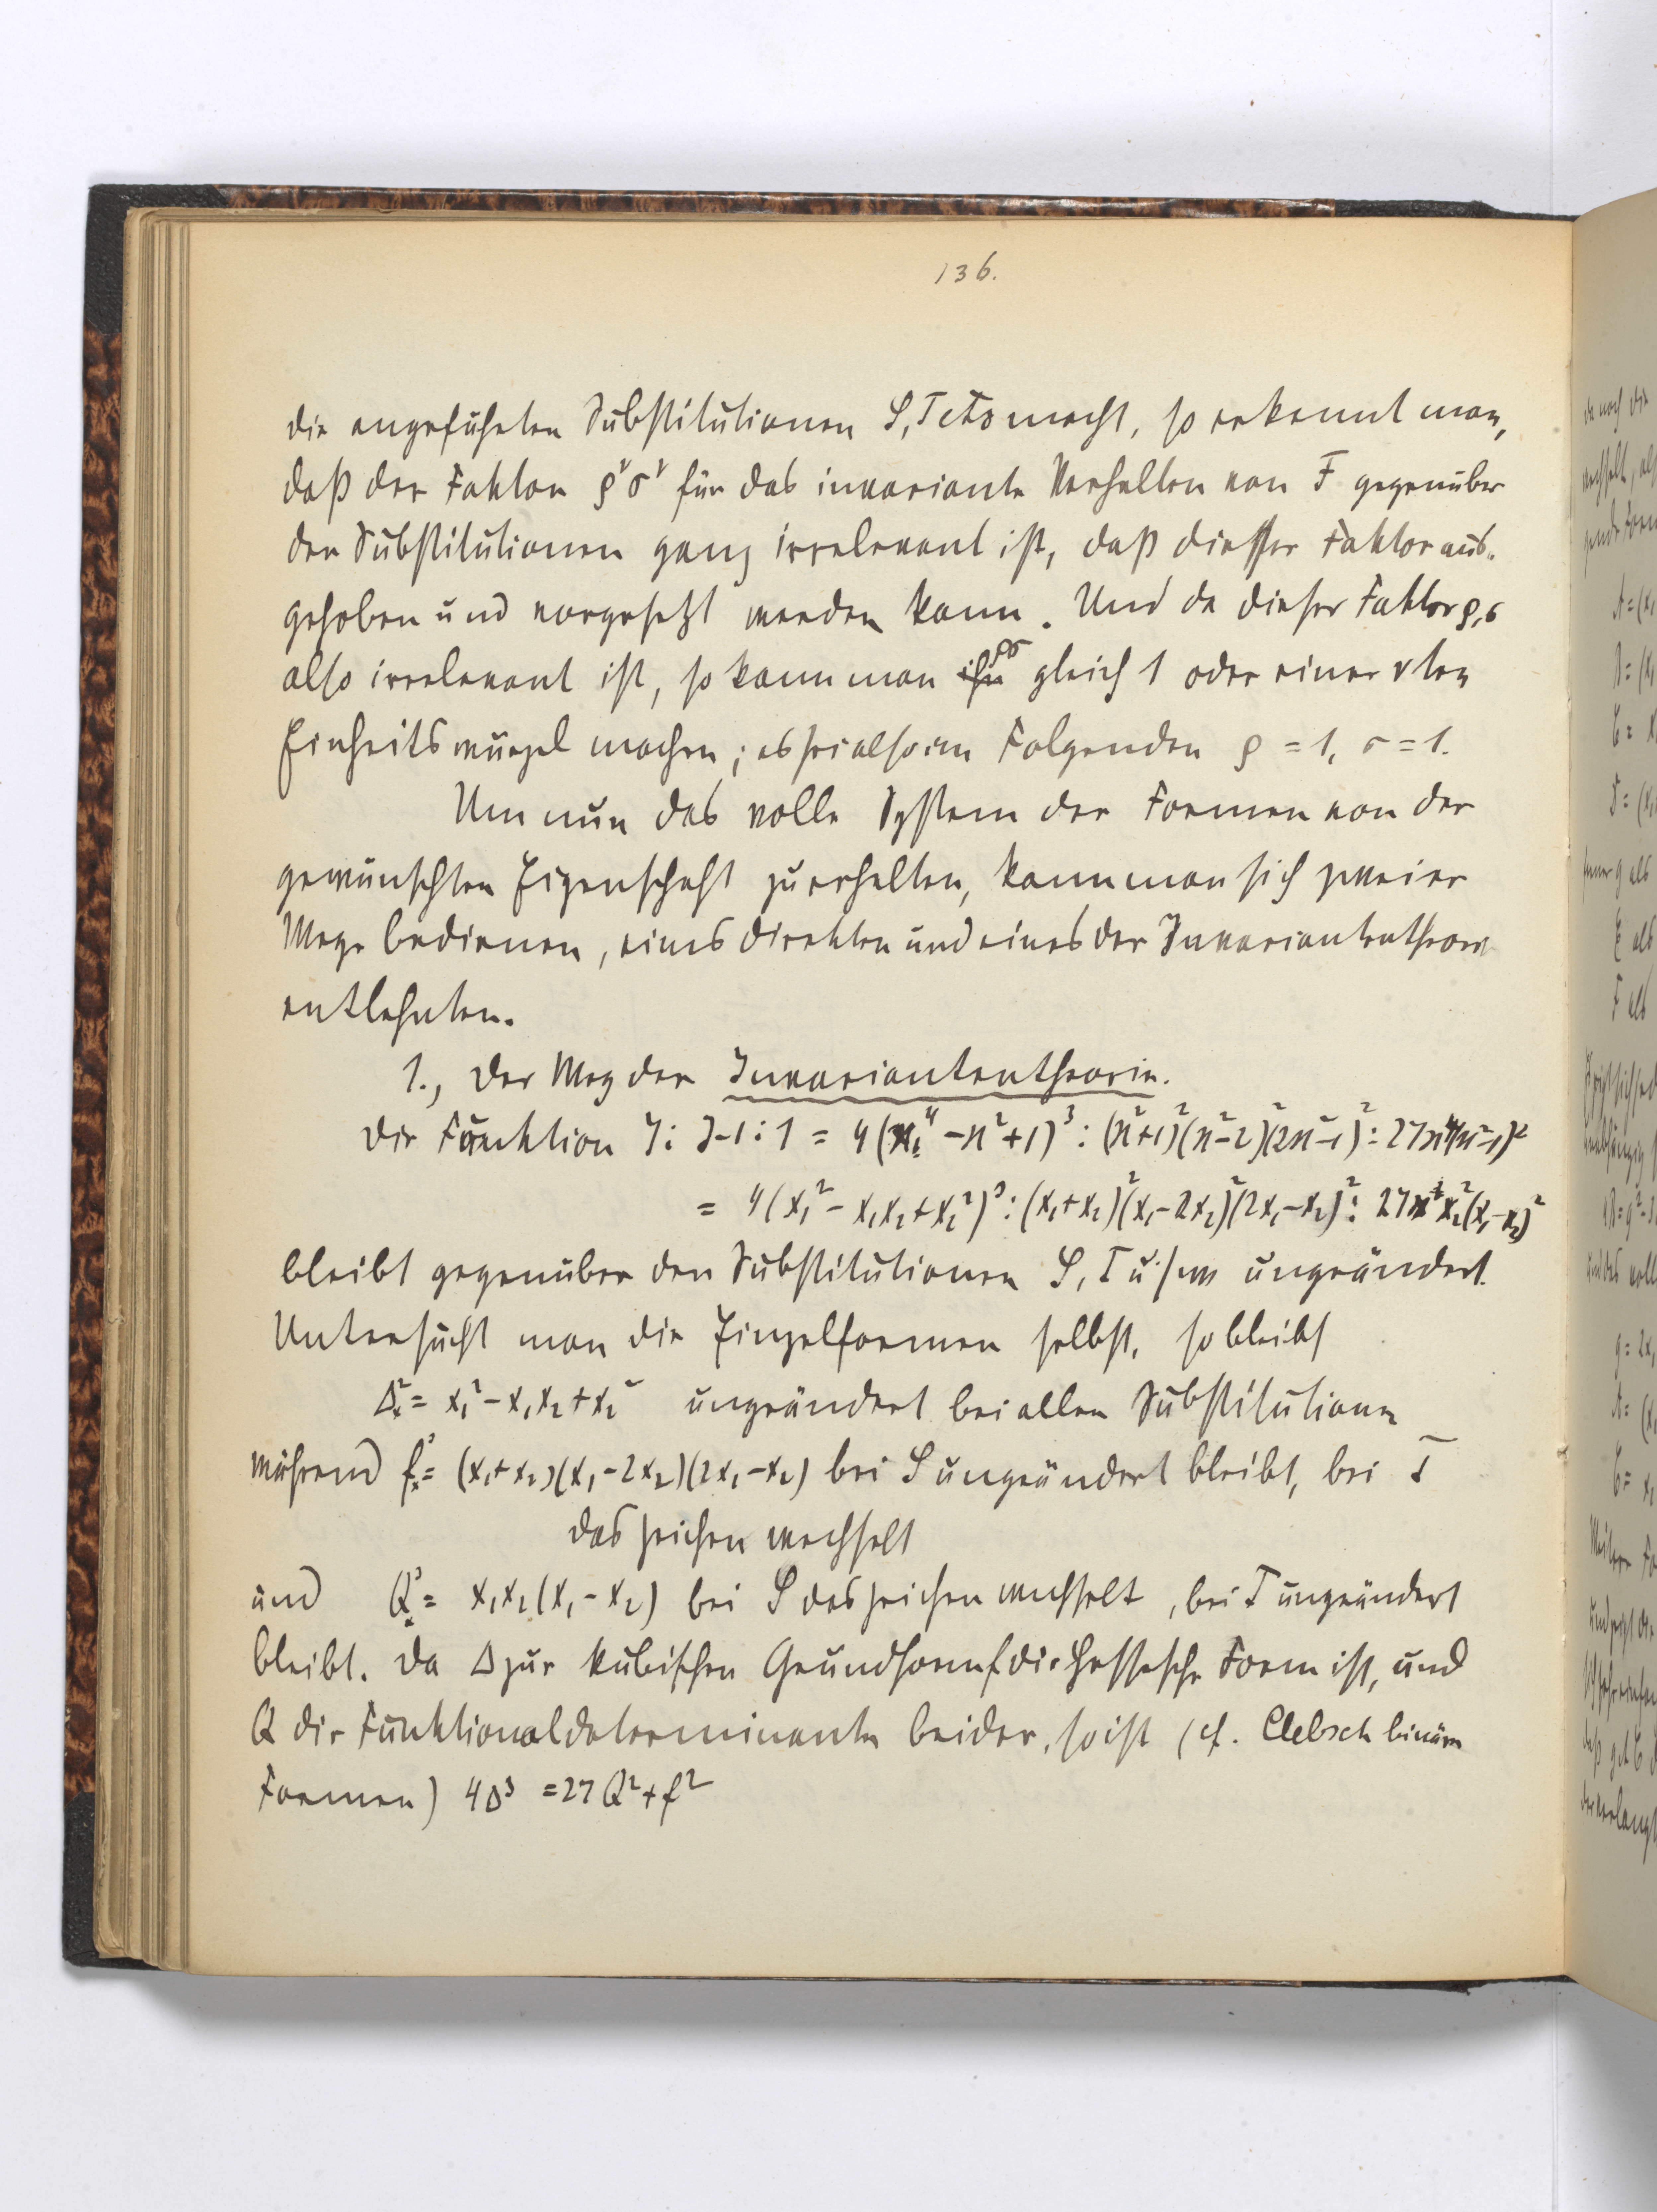 136.
die angeführten Substitutionen S, T etc macht, so erkennt man,
daß der Faktor ρ^ν σ^ν für das invariante Verhalten von F gegenüber
den Substitutionen ganz irrelevant ist, daß dieser Faktor aus-
gehoben und vorgesetzt werden kann. Und da dieser Faktor ρ, σ
also irrelevant ist, so kann man ρσ gleich 1 oder einer νten
Einheitswurzel machen; es sei also im Folgenden ρ = 1, σ = 1.
Um nun das volle System der Formen von der
gewünschten Eigenschaft zu erhalten, kann man sich zweier
Wege bedienen, eines direkten und eines der Invariantentheorie
entlehnten.
1., Der Weg der Invariantentheorie.
Die Funktion J : J-1 : 1 = 4(ϰ⁴ - ϰ² + 1)³ : (ϰ²+1)²(ϰ²-2)²(2ϰ²-1)² : 27ϰ⁴(ϰ²-1)²
= 4(x₁² - x₁x₂ + x₂²)³ : (x₁+x₂)²(x₁-2x₂)²(2x₁-x₂)² : 27x₁²x₂²(x₁-x₂)²
bleibt gegenüber den Substitutionen S, T u.s.w ungeändert.
Untersucht man die Einzelformen selbst, so bleibt
Δₓ² = x₁² - x₁x₂ + x₂² ungeändert bei allen Substitutionen
während fₓ³ = (x₁+x₂)(x₁-2x₂)(2x₁-x₂) bei S ungeändert bleibt, bei T
das Zeichen wechselt
und Qₓ³ = x₁x₂(x₁-x₂) bei S das Zeichen wechselt, bei T ungeändert
bleibt. Da Δ zur kubischen Grundform f die Hessesche Form ist, und
Q die Funktionaldeterminante beider, so ist (cf. Clebsch binäre
Formen) 4Δ³ = 27Q² + f²